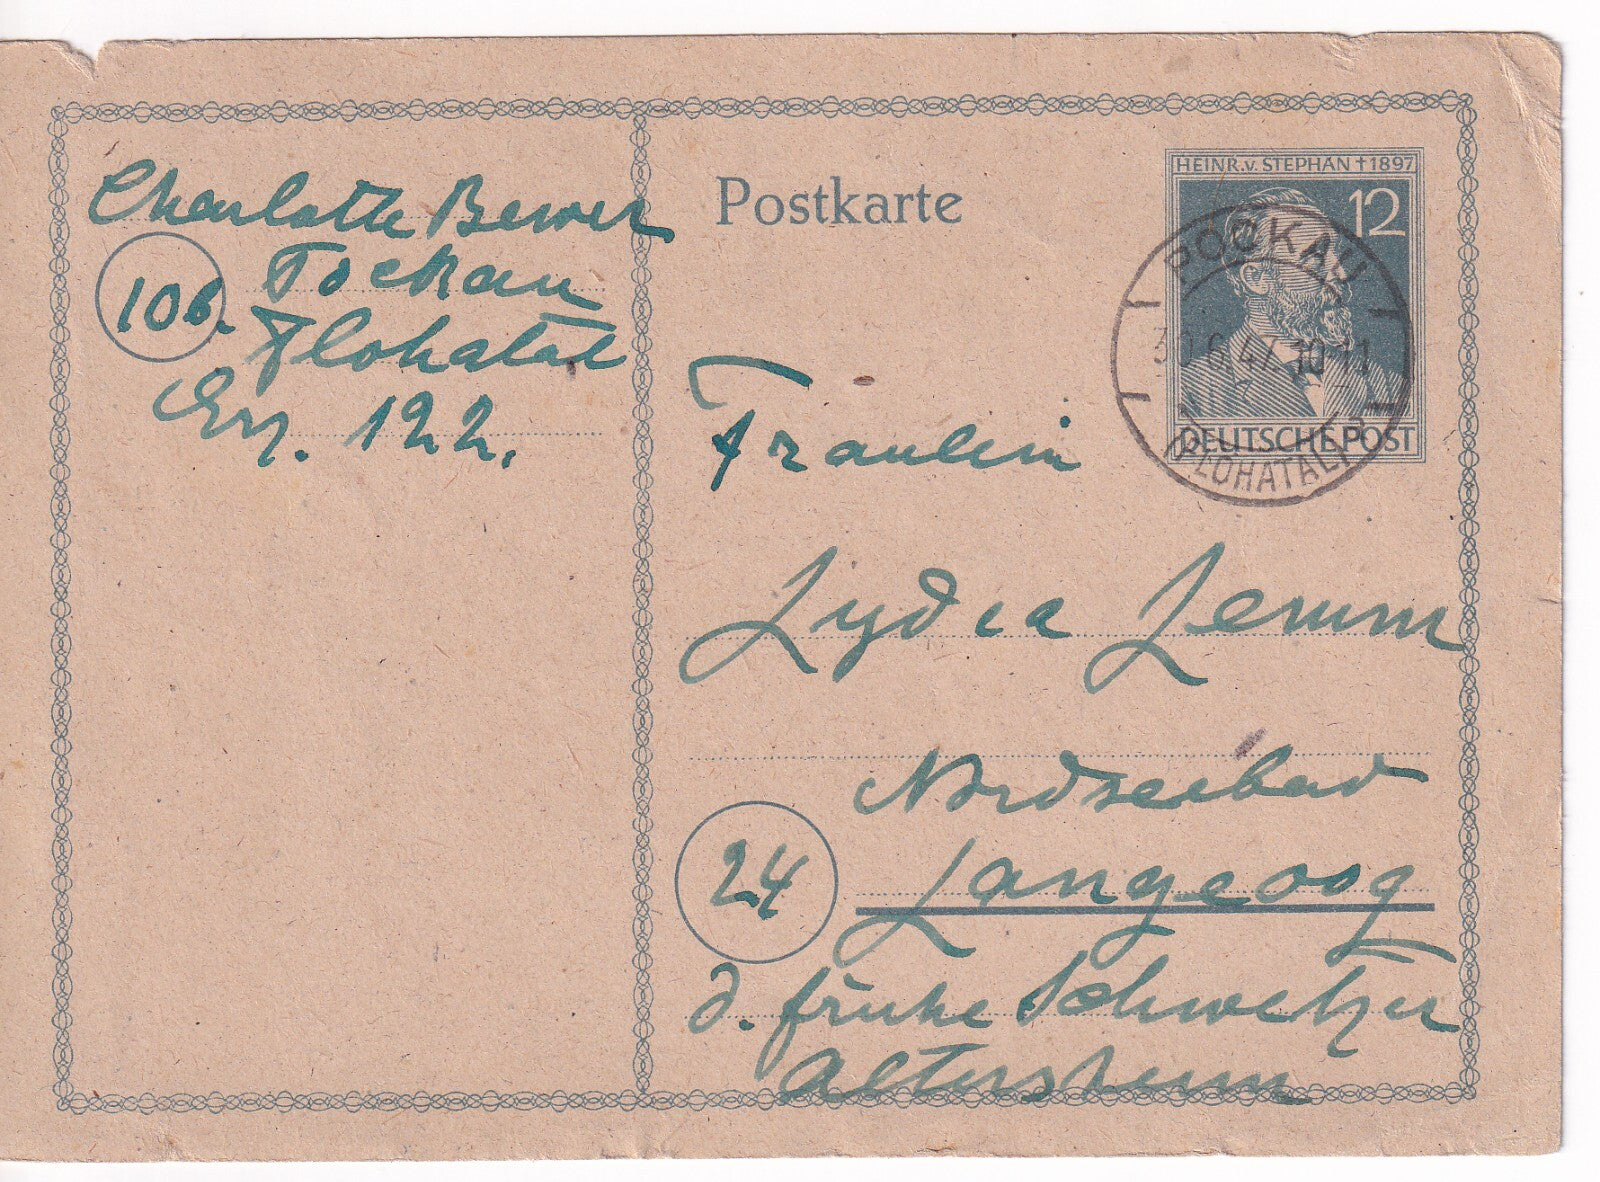 Charlotte
10b. Pockau
Flohatal
Erz. 122.
Postkarte
HEINR. v. STEPHAN † 1897
12
DEUTSCHE POST
POCKAU
30.6.47. 10-11
(FLOHATAL)
Fräulein
Lydia
Nordseebad
24 Langeoog
d. frühe
Altersheim